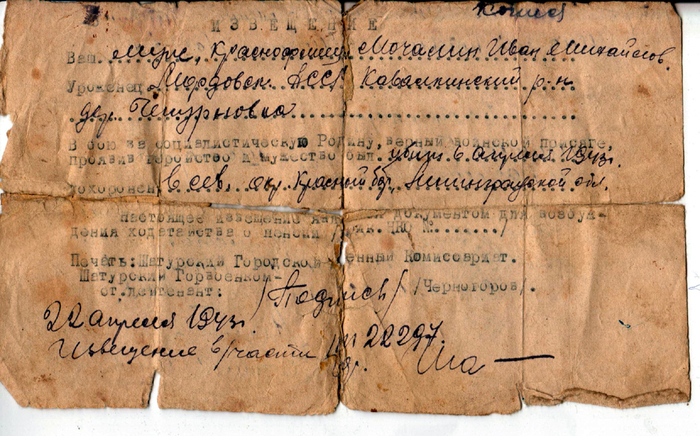 Копия
ИЗВЕЩЕНИЕ
Ваш муж, Краснофлотец Мочалин Иван Михайлов.
Уроженец Мордовск. АССР Ковалкинский р-н
дер.
В бою за социалистическую Родину, верный воинской присяге,
проявив геройство и мужество был убит 6 апреля 1943г.
похоронен в сев. окр. Красный бор, Ленинградской обл.
Настоящее извещение является документом для возбуж-
дения ходатайства о пенсии /прик. НКО №......../
Печать: Шатурский Городской Военный Комиссариат.
Шатурский Горвоенком-
ст.лейтенант: /Подпись/ /Черногоров/.
22 апреля 1943г.
Извещение в/части № 22297.